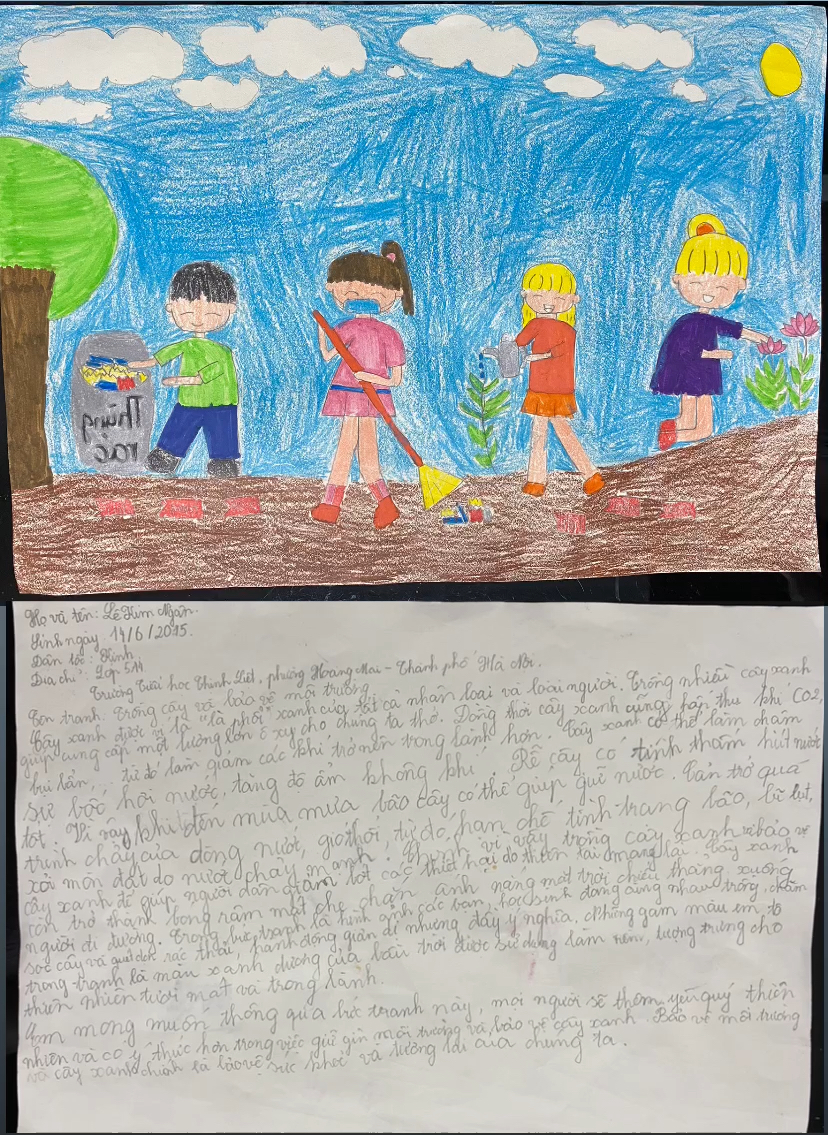 Thùng
rác
Họ và tên: Lê Kim Ngân.
Sinh ngày 14/6/2015.
Dân tộc: Kinh
Địa chỉ: Lớp 5A4
Trường Tiểu học Thịnh Liệt, phường Hoàng Mai - Thành phố Hà Nội.
Tên tranh: Trồng cây và bảo vệ môi trường.
Cây xanh được ví là "lá phổi" xanh của tất cả nhân loại và loài người. Trồng nhiều cây xanh
giúp cung cấp một lượng lớn ô xy cho chúng ta thở. Đồng thời cây xanh cũng hấp thu khí CO2,
bụi bẩn, từ đó làm giảm các khí trở nên trong lành hơn. Cây xanh có thể làm chậm
sự bốc hơi nước, tăng độ ẩm không khí. Rễ cây có tính thấm hút nước
tốt. Vì vậy khi đến mùa mưa bão cây có thể giúp giữ nước. Cản trở quá
trình chảy của dòng nước, gió thổi, từ đó hạn chế tình trạng bão, lũ lụt,
xói mòn đất do nước chảy mạnh. Chính vì vậy trồng cây xanh và bảo vệ
cây xanh để giúp người dân giảm tốt các thiệt hại do thiên tai mang lại. Cây xanh
còn trở thành bóng râm mát che chắn ánh nắng mặt trời chiếu thẳng xuống
người đi đường. Trong bức tranh là hình ảnh các bạn học sinh đang cùng nhau trồng, chăm
sóc cây và quét dọn rác thải, hành động giản dị nhưng đầy ý nghĩa. Phông gam màu em tô
trong tranh là màu xanh dương của bầu trời được sử dụng làm nền, tượng trưng cho
thiên nhiên tươi mát và trong lành.
Em mong muốn thông qua bức tranh này, mọi người sẽ thêm yêu quý thiên
nhiên và có ý thức hơn trong việc giữ gìn môi trường và bảo vệ cây xanh. Bảo vệ môi trường
và cây xanh chính là bảo vệ sức khoẻ và tương lai của chúng ta.